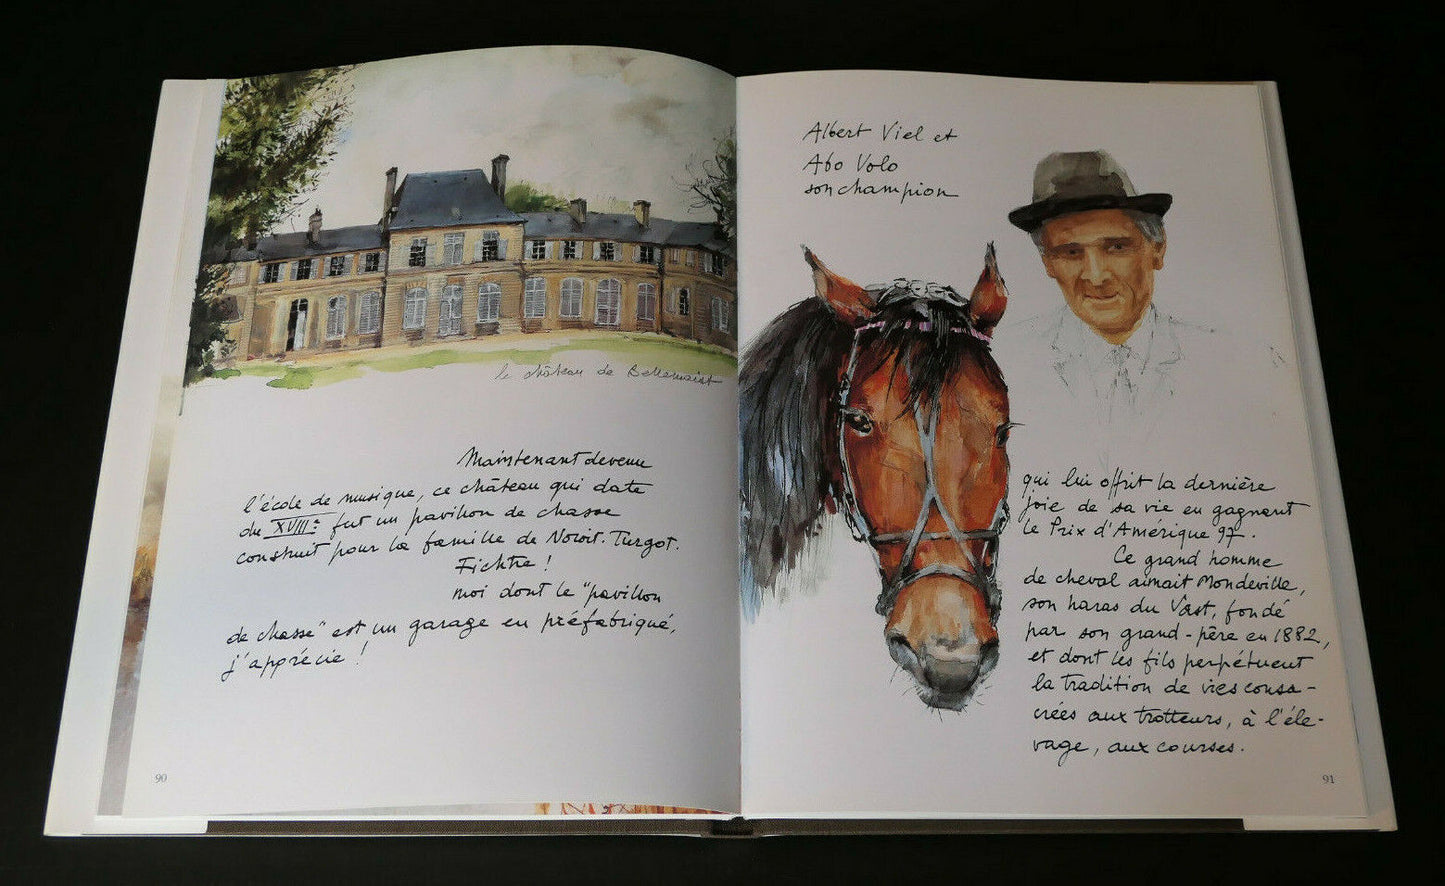 le château de Bellemaist
Maintenant devenu
l'école de musique, ce château qui date
du XVIIIe fut un pavillon de chasse
construit pour la famille de Novoit. Turgot.
Fichtre !
moi dont le "pavillon
de chasse" est un garage en préfabriqué,
j'apprécie !
90
Albert Viel et
Abo Volo
son champion
qui lui offrit la dernière
joie de sa vie en gagnant
le Prix d'Amérique 97.
Ce grand homme
de cheval aimait Mondeville,
son haras du Vast, fondé
par son grand-père en 1882,
et dont les fils perpétuent
la tradition de vies consa-
crées aux trotteurs, à l'éle-
vage, aux courses.
91